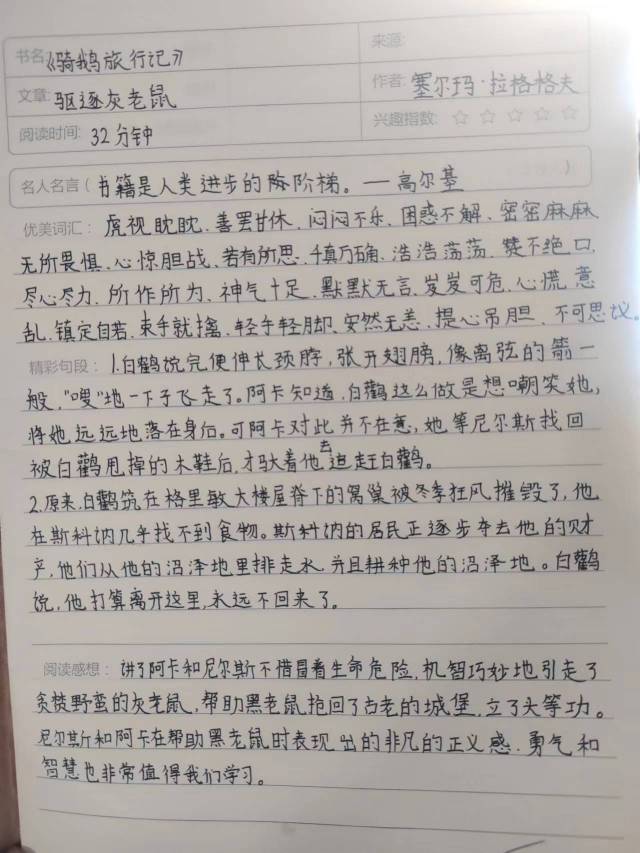 书名 《骑鹅旅行记》 来源:
文章: 驱逐灰老鼠 作者: 塞尔玛·拉格格夫
阅读时间: 32分钟 兴趣指数: ☆ ☆ ☆ ☆ ☆
名人名言 ( 书籍是人类进步的阶梯。—高尔基 )
优美词汇: 虎视眈眈、善罢甘休、闷闷不乐、困惑不解、密密麻麻
无所畏惧、心惊胆战、若有所思、千真万确、浩浩荡荡、赞不绝口、
尽心尽力、所作所为、神气十足、默默无言、岌岌可危、心慌意
乱、镇定自若、束手就擒、轻手轻脚、安然无恙、提心吊胆、不可思议。
精彩句段: 1.白鹳说完便伸长颈脖,张开翅膀,像离弦的箭一
般,“嗖”地一下子飞走了。阿卡知道,白鹳这么做是想嘲笑她,
将她远远地落在身后。可阿卡对此并不在意,她等尼尔斯找回
被白鹳甩掉的木鞋后,才驮着他去追赶白鹳。
2.原来,白鹳筑在格里敏大楼屋脊下的窝巢被冬季狂风摧毁了,他
在斯科讷几乎找不到食物。斯科讷的居民正逐步夺去他的财
产,他们从他的沼泽地里排走水,并且耕种他的沼泽地。白鹳
说,他打算离开这里,永远不回来了。
阅读感想: 讲了阿卡和尼尔斯不惜冒着生命危险,机智巧妙地引走了
贪婪野蛮的灰老鼠,帮助黑老鼠抢回了古老的城堡,立了头等功。
尼尔斯和阿卡在帮助黑老鼠时表现出的非凡的正义感、勇气和
智慧也非常值得我们学习。